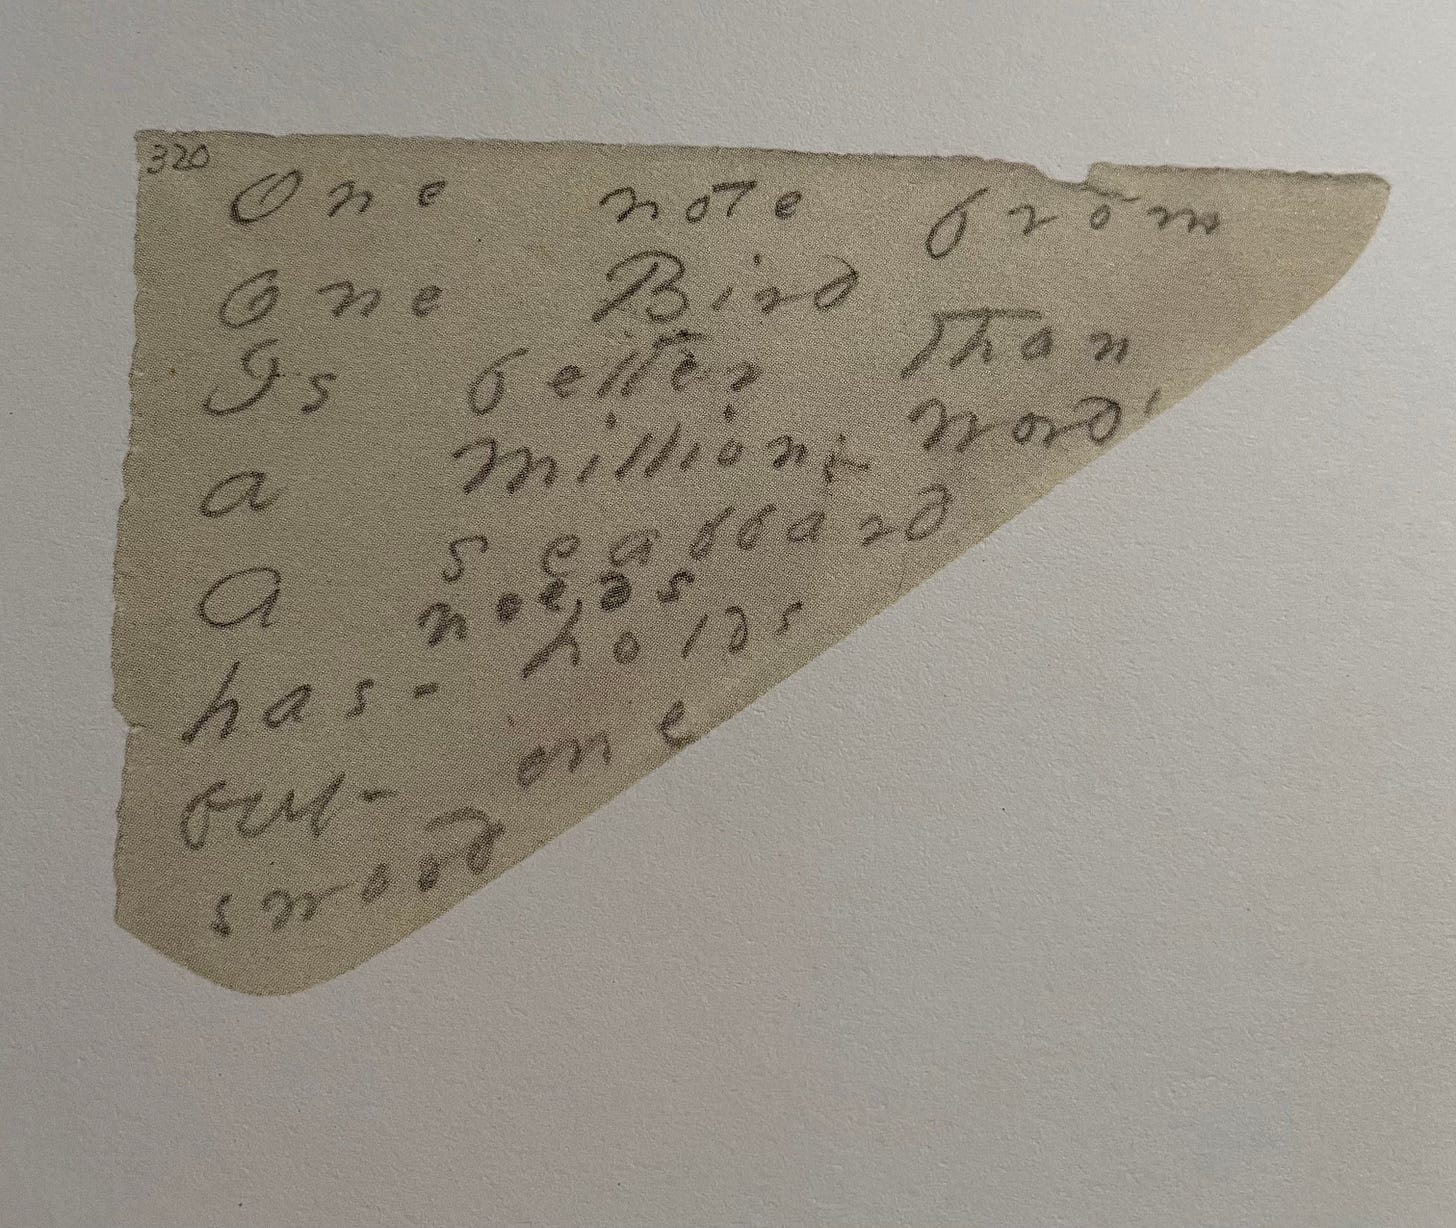 320
One note from
One Bird
Is better than
a million word
a scabbard
needs
has - holds
but - one
sword